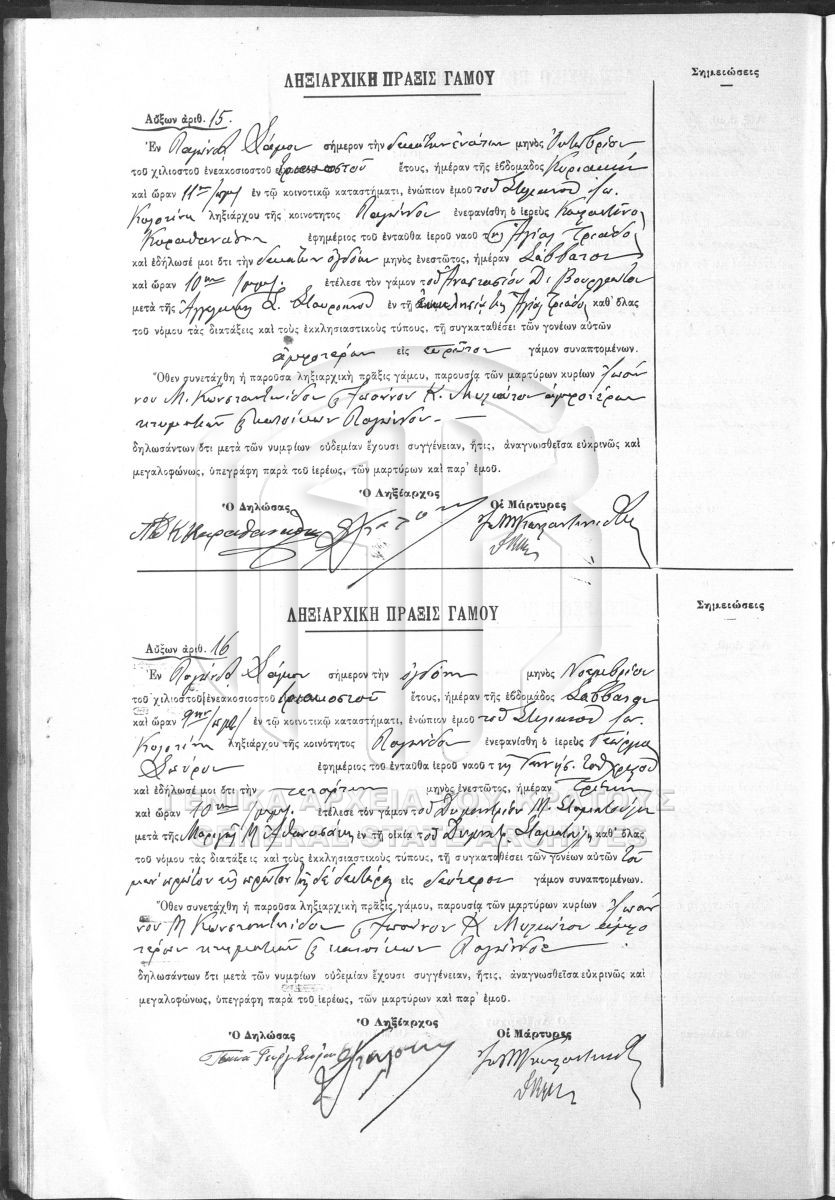 ΛΗΞΙΑΡΧΙΚΗ ΠΡΑΞΙΣ ΓΑΜΟΥ
Σημειώσεις
Αὔξων ἀριθ. 15.
Ἐν Παγώνδᾳ Σάμου σήμερον τὴν δεκάτην ἐνάτην μηνὸς Ὀκτωβρίου
τοῦ χιλιοστοῦ ἐνεακοσιοστοῦ τριακοστοῦ ἔτους, ἡμέραν τῆς ἑβδομάδος Κυριακὴν
καὶ ὥραν 11ην πμ ἐν τῷ κοινοτικῷ καταστήματι, ἐνώπιον ἐμοῦ τοῦ Στυλιανοῦ Ἰω.
ληξιάρχου τῆς κοινότητος Παγώνδου ἐνεφανίσθη ὁ ἱερεὺς Κωνσταντῖνος
Καραθανάσης ἐφημέριος τοῦ ἐνταῦθα ἱεροῦ ναοῦ τῆς Ἁγίας Τριάδος
καὶ ἐδήλωσέ μοι ὅτι τὴν δεκάτην ὀγδόην μηνὸς ἐνεστῶτος, ἡμέραν Σάββατον
καὶ ὥραν 10ην ἐτέλεσε τὸν γάμον τοῦ Ἀναστασίου Δ.
μετὰ τῆς Σταυρινοῦ ἐν τῇ Ἐκκλησίᾳ τῆς Ἁγίας Τριάδος καθ' ὅλας
τοῦ νόμου τὰς διατάξεις καὶ τοὺς ἐκκλησιαστικοὺς τύπους, τῇ συγκαταθέσει τῶν γονέων αὐτῶν
ἀμφοτέρων εἰς πρῶτον γάμον συναπτομένων.
Ὅθεν συνετάχθη ἡ παροῦσα ληξιαρχικὴ πρᾶξις γάμου, παρουσίᾳ τῶν μαρτύρων κυρίων Ἰωάν
νου Μ. Κωνσταντινίδου & Ἰωάννου Κ. ἀμφοτέρων
κτηματιῶν & κατοίκων Παγώνδου
δηλωσάντων ὅτι μετὰ τῶν νυμφίων οὐδεμίαν ἔχουσι συγγένειαν, ἥτις, ἀναγνωσθεῖσα εὐκρινῶς καὶ
μεγαλοφώνως, ὑπεγράφη παρὰ τοῦ ἱερέως, τῶν μαρτύρων καὶ παρ' ἐμοῦ.
Ὁ Δηλώσας
Ὁ Ληξίαρχος
Οἱ Μάρτυρες
ΛΗΞΙΑΡΧΙΚΗ ΠΡΑΞΙΣ ΓΑΜΟΥ
Σημειώσεις
Αὔξων ἀριθ. 16
Ἐν Παγώνδᾳ Σάμου σήμερον τὴν ὀγδόην μηνὸς Νοεμβρίου
τοῦ χιλιοστοῦ ἐνεακοσιοστοῦ τριακοστοῦ ἔτους, ἡμέραν τῆς ἑβδομάδος Σάββατον
καὶ ὥραν 9ην πμ ἐν τῷ κοινοτικῷ καταστήματι, ἐνώπιον ἐμοῦ τοῦ Στυλιανοῦ Ἰω.
ληξιάρχου τῆς κοινότητος Παγώνδου ἐνεφανίσθη ὁ ἱερεὺς Γεώργιος
Σπύρου ἐφημέριος τοῦ ἐνταῦθα ἱεροῦ ναοῦ τῆς Γεννήσ. τοῦ Χριστοῦ
καὶ ἐδήλωσέ μοι ὅτι τὴν τετάρτην μηνὸς ἐνεστῶτος, ἡμέραν Τρίτην
καὶ ὥραν 10ην ἐτέλεσε τὸν γάμον τοῦ Δημητρίου Μ.
μετὰ τῆς Μ. ἐν τῇ οἰκίᾳ τοῦ Δημητρ. καθ' ὅλας
τοῦ νόμου τὰς διατάξεις καὶ τοὺς ἐκκλησιαστικοὺς τύπους, τῇ συγκαταθέσει τῶν γονέων αὐτῶν τοῦ
μὲν πρώτου εἰς πρῶτον τῆς δὲ δευτέρας εἰς δεύτερον γάμον συναπτομένων.
Ὅθεν συνετάχθη ἡ παροῦσα ληξιαρχικὴ πρᾶξις γάμου, παρουσίᾳ τῶν μαρτύρων κυρίων Ἰωάν
νου Μ Κωνσταντινίδου & Ἰωάννου Κ ἀμφο
τέρων κτηματιῶν & κατοίκων Παγώνδου
δηλωσάντων ὅτι μετὰ τῶν νυμφίων οὐδεμίαν ἔχουσι συγγένειαν, ἥτις, ἀναγνωσθεῖσα εὐκρινῶς καὶ
μεγαλοφώνως, ὑπεγράφη παρὰ τοῦ ἱερέως, τῶν μαρτύρων καὶ παρ' ἐμοῦ.
Ὁ Δηλώσας
Ὁ Ληξίαρχος
Οἱ Μάρτυρες
ΓΕΝΙΚΑ ΑΡΧΕΙΑ ΤΟΥ ΚΡΑΤΟΥΣ
GENERAL STATE ARCHIVES